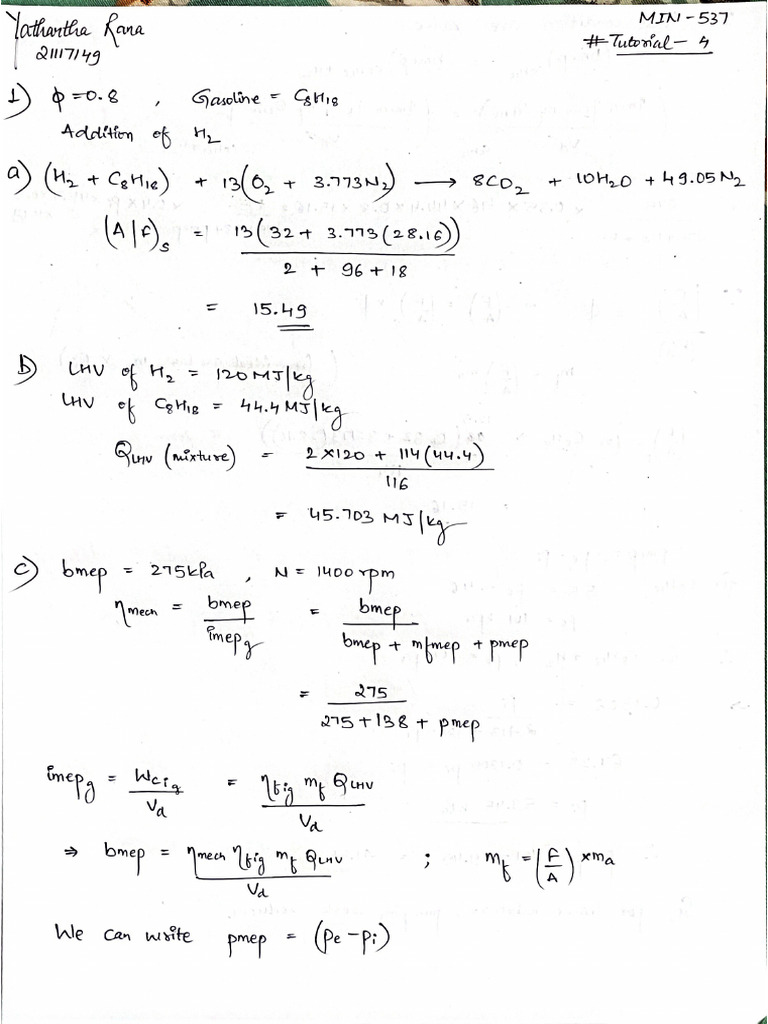 Yathartha Rana
21117149
MIN-537
#Tutorial-4
1) ϕ=0.8 , Gasoline = C₈H₁₈
Addition of H₂
a) (H₂ + C₈H₁₈) + 13(O₂ + 3.773N₂) ⟶ 8CO₂ + 10H₂O + 49.05N₂
(A/F)ₛ = 13(32 + 3.773(28.16)) / 2 + 96 + 18
= 15.49
b) LHV of H₂ = 120MJ/kg
LHV of C₈H₁₈ = 44.4MJ/kg
Q_LHV (mixture) = 2×120 + 114(44.4) / 116
= 45.703 MJ/kg
c) bmep = 275kPa , N = 1400rpm
η_mech = bmep / imep_g = bmep / bmep + mfmep + pmep
= 275 / 275+138 + pmep
imep_g = W_cig / V_d = η_fig m_f Q_LHV / V_d
⇒ bmep = η_mech η_fig m_f Q_LHV / V_d ; m_f = (F/A) × m_a
We can write pmep = (p_e - p_i)